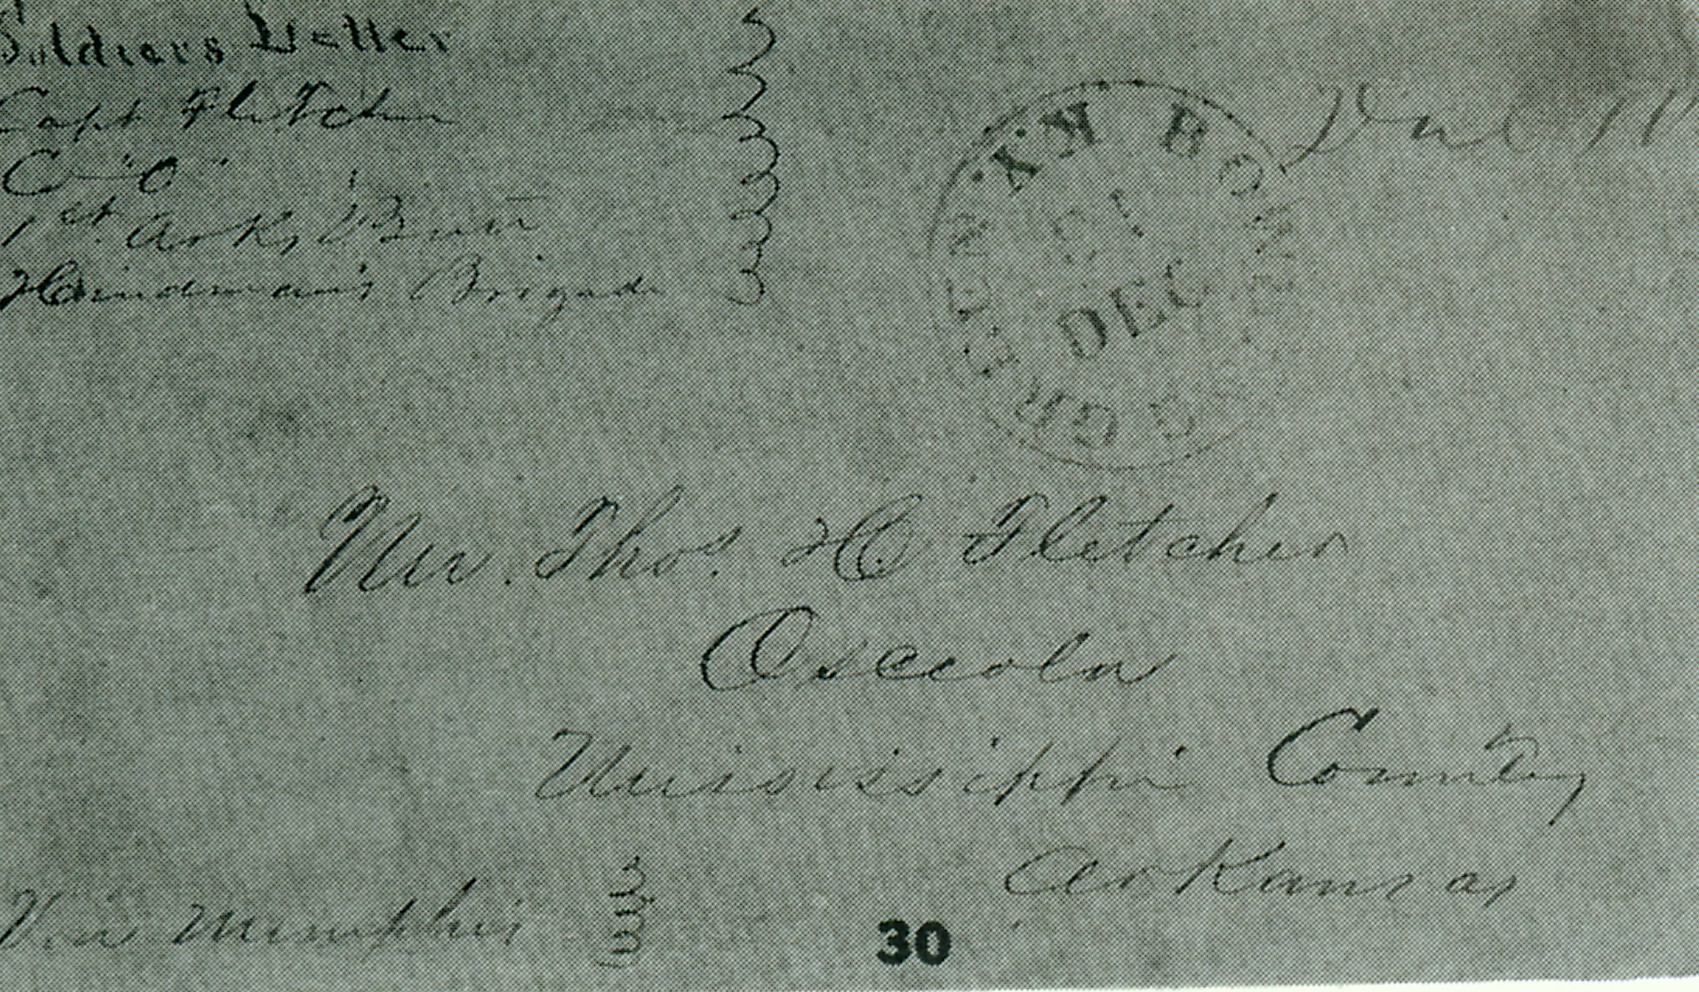 Soldiers Letter
Capt Fletcher
Co "C"
1st. Arks, Batt
Hindman's Brigade
Due
BOWLING GREEN
DEC
Mr. Thos. H. Fletcher
Osceola
Mississippi County
Arkansas
Via Memphis
30